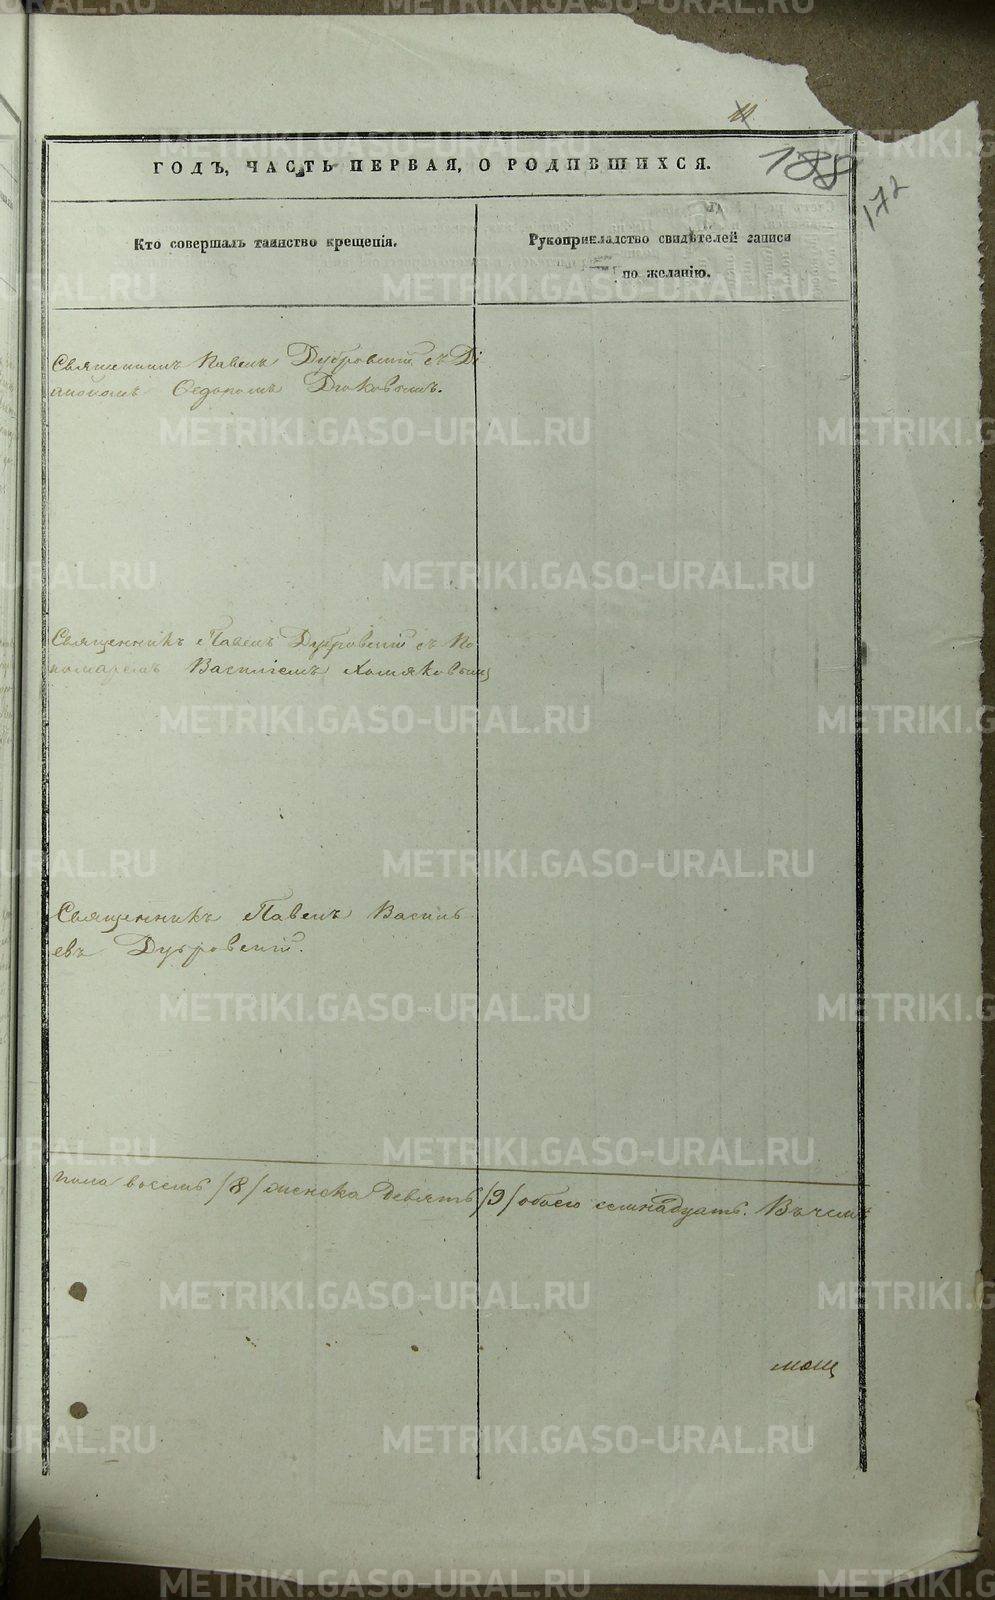 11
ГОДЪ, ЧАСТЬ ПЕРВАЯ, О РОДИВШИХСЯ.
188
172
Кто совершалъ таинство крещенія.
Рукоприкладство свидѣтелей записи
по желанію.
Священникъ Павелъ Дубровскій съ Ді
акономъ Ѳедоромъ
Священникъ Павелъ Дубровскій съ По
номаремъ Василіемъ Хомяковымъ
Священникъ Павелъ Василь
евъ Дубровскій.
пола восемь /8/ женска девять /9/ обоего семнадцать. Въ чемъ
METRIKI.GASO-URAL.RU